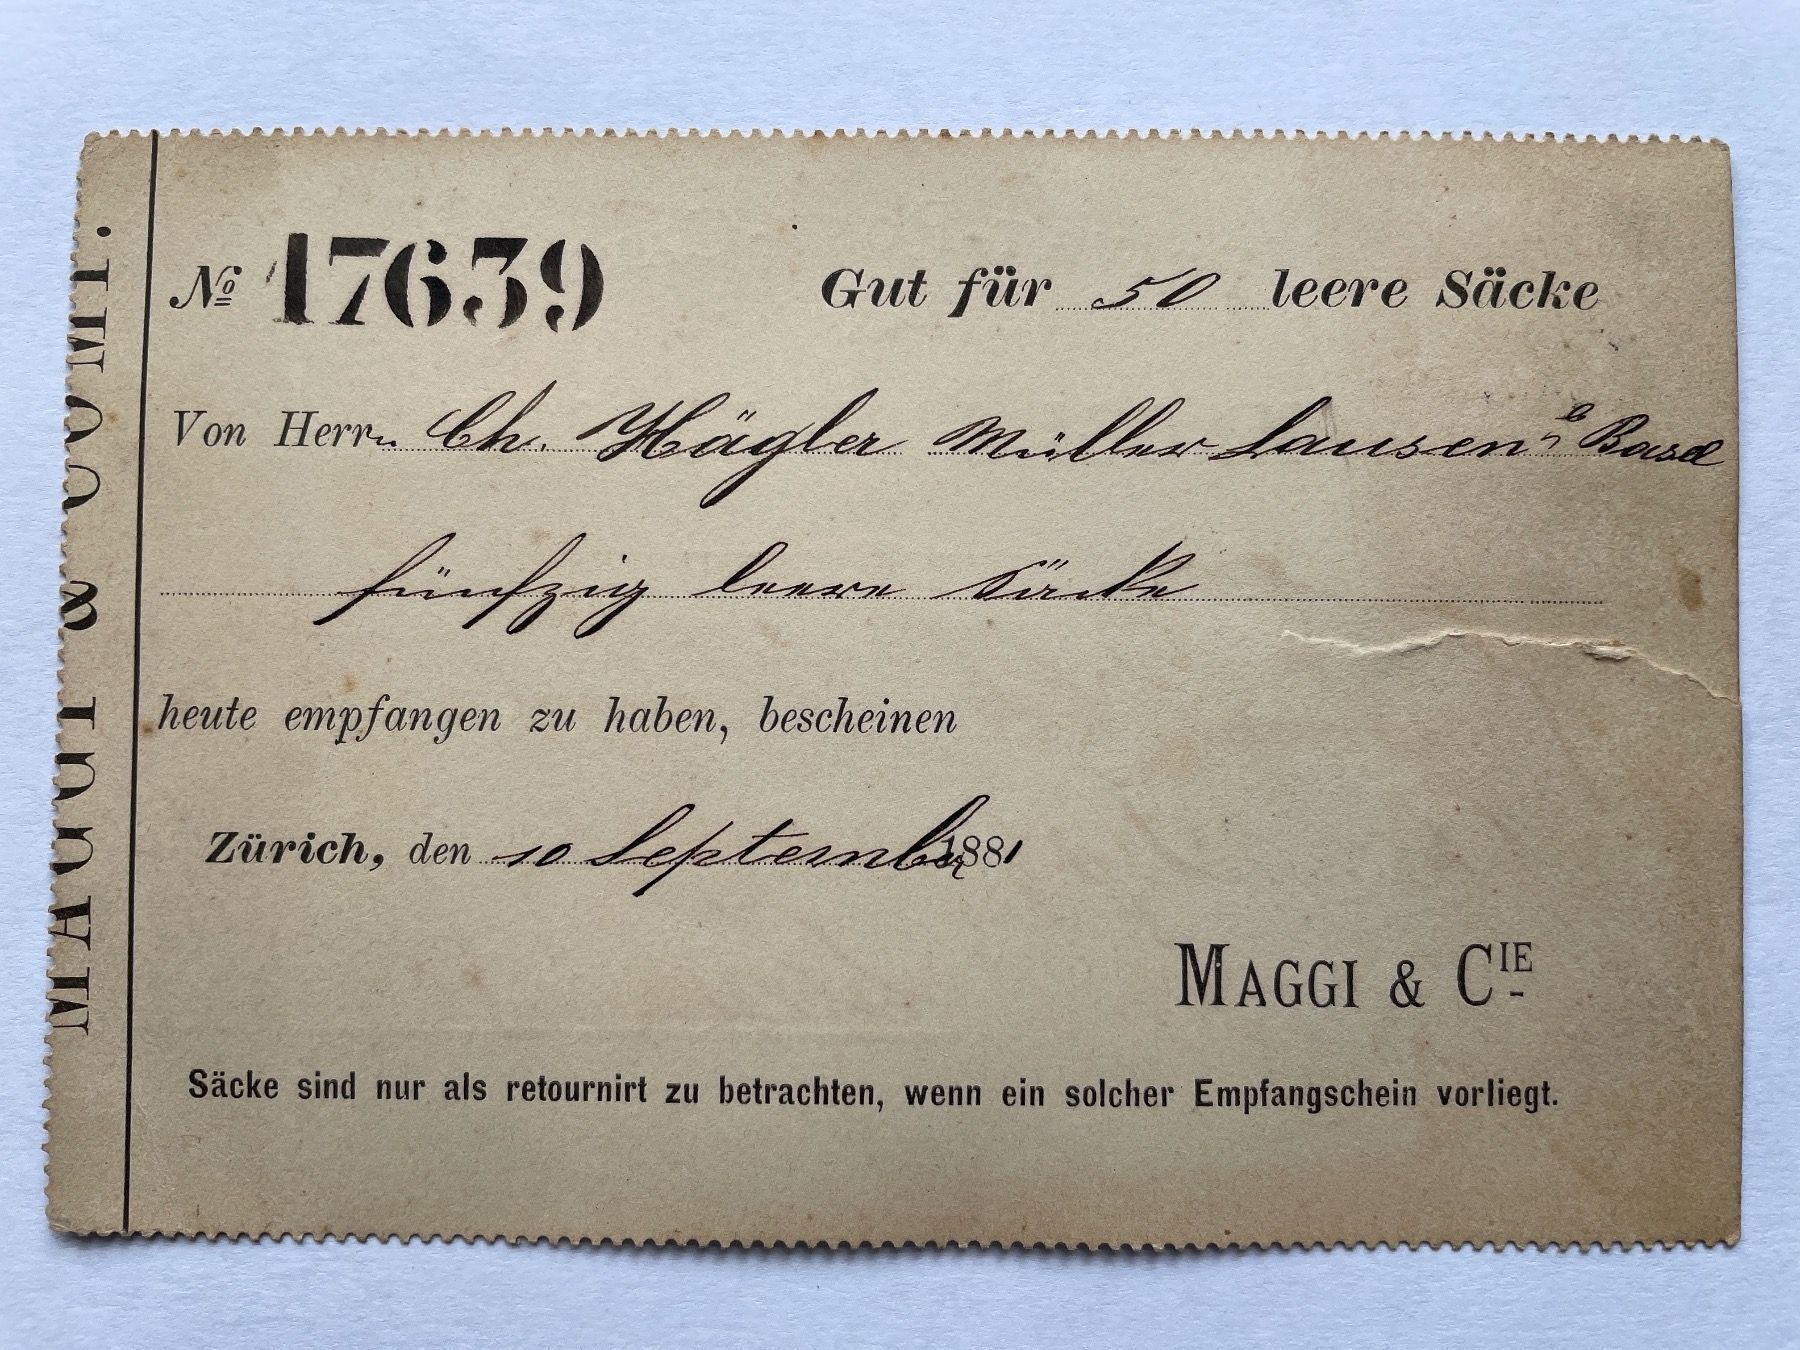 MAGGI & COMP.
No 17639 Gut für 50 leere Säcke
Von Herrn Ch. Hägler Müller Lausen b Basel
fünfzig leere Säcke
heute empfangen zu haben, bescheinen
Zürich, den 10 September 1881
MAGGI & CIE
Säcke sind nur als retournirt zu betrachten, wenn ein solcher Empfangschein vorliegt.